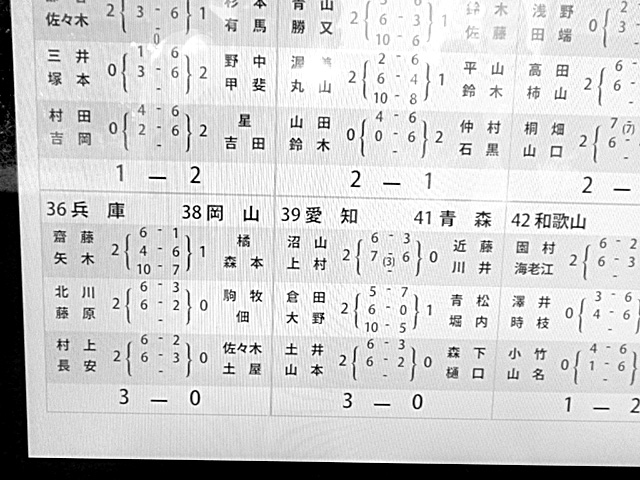 佐々木 2 3 - 6 1 有 馬
0
三 井 0 1 6 2 野 中
塚 本 3 - 6 甲 斐
-
村 田 0 4 - 6 2 星
吉 岡 2 - 6 吉 田
-
1 — 2
山
勝 又 2 6 - 3 1 佐 藤
10 - 6
2 2 - 6 1 平 山
丸 山 6 - 4 鈴 木
10 - 8
山 田 0 4 - 6 2 仲 村
鈴 木 0 - 6 石 黒
-
2 — 1
浅 野 0
田 端
高 田 2 6 -
柿 山 6 -
桐 畑 2 7 (7)
山 口 6 -
2 —
36 兵 庫 38 岡 山
齋 藤 2 6 - 1 1 橘
矢 木 4 - 6 森 本
10 - 7
北 川 2 6 - 3 0 駒 牧
藤 原 6 - 2 佃
-
村 上 2 6 - 2 0 佐々木
長 安 6 - 3 土 屋
-
3 — 0
39 愛 知 41 青 森
沼 山 2 6 - 3 0 近 藤
上 村 7 (3) 6 川 井
-
倉 田 2 5 - 7 1 青 松
大 野 6 - 0 堀 内
10 - 5
土 井 2 6 - 3 0 森 下
山 本 6 - 2 樋 口
-
3 — 0
42 和歌山
園 村 2 6 - 2
海老江 6 - 3
-
澤 井 0 3 - 6
時 枝 4 - 6
-
小 竹 0 4 - 6
山 名 1 - 6
-
1 — 2